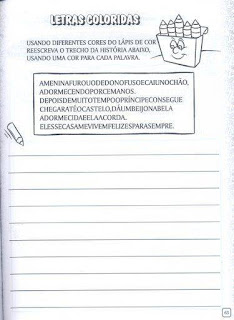 LETRAS COLORIDAS
USANDO DIFERENTES CORES DO LÁPIS DE COR
REESCREVA O TRECHO DA HISTÓRIA ABAIXO,
USANDO UMA COR PARA CADA PALAVRA.
AMENINAFUROUODEDONOFUSOECAIUNOCHÃO,
ADORMECENDOPORCEMANOS.
DEPOISDEMUITOTEMPOOPRÍNCIPECONSEGUE
CHEGARATÉOCASTELO,DÁUMBEIJONABELA
ADORMECIDAEELAACORDA.
ELESSECASAMEVIVEMFELIZESPARASEMPRE.